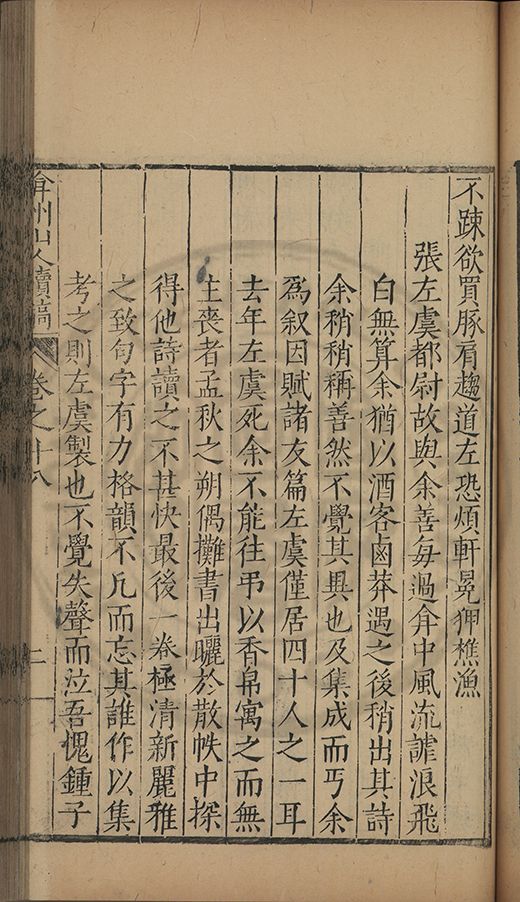 不踈欲買豚肩趨道左恐煩軒冕狎樵漁
張左虞都尉故與余善每過弇中風流謔浪飛
白無算余猶以酒客鹵莽遇之後稍出其詩
余稍稍稱善然不覺其異也及集成而丐余
爲叙因賦諸友篇左虞僅居四十人之一耳
去年左虞死余不能往弔以香帛寓之而無
主喪者孟秋之朔偶攤書出曬於散帙中探
得他詩讀之不甚快最後一卷極清新麗雅
之致句字有力格韻不凡而忘其誰作以集
考之則左虞製也不覺失聲而泣吾愧鍾子
弇州山人續稿 卷之十八 二